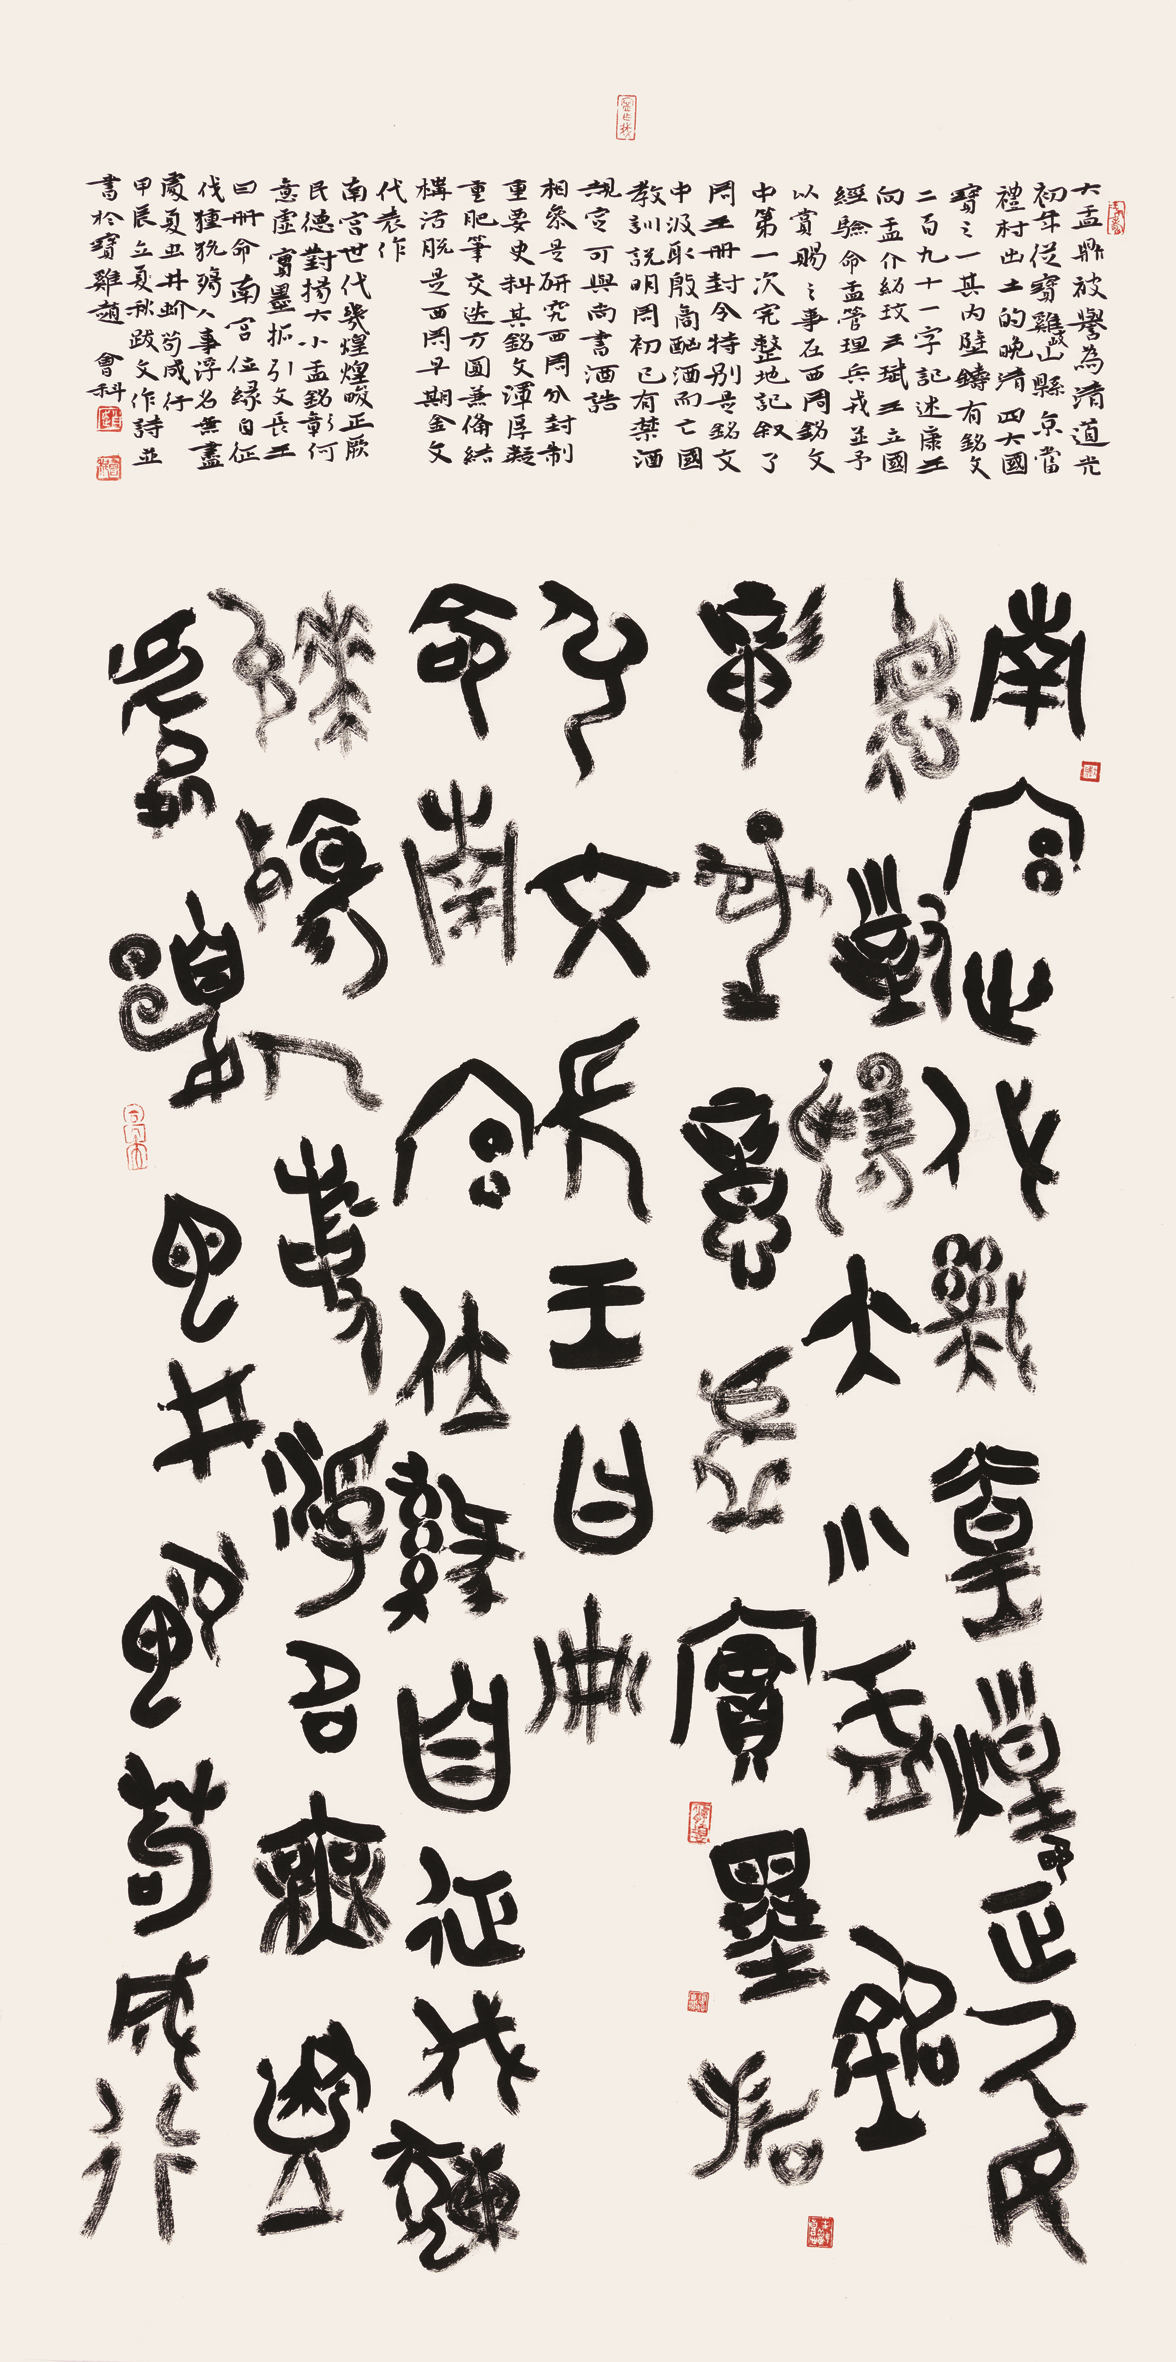 大盂鼎被譽為清道光
初年從寶雞岐山縣京當
禮村出土的晚清四大國
寶之一其內壁鑄有銘文
二百九十一字記述康王
向盂介紹玟王珷王立國
經驗命盂管理兵戎並予
以賞賜之事在西周銘文
中第一次完整地記敘了
周王冊封令特別是銘文
中汲取殷商酗酒而亡國
教訓說明周初已有禁酒
規定可與尚書酒誥
相參是研究西周分封制
重要史料其銘文渾厚凝
重肥筆交迭方圓兼備結
構活脫是西周早期金文
代表作
南宮世代幾煌煌畯正厥
民德對揚大小盂銘章何
意虛實墨拓引文長王
曰冊命南宮位緣自征
伐玁狁殤人事浮名無盡
處夏丑井卹苟成行
甲辰立夏秋跋文作詩並
書於寶雞趙會科
南宮世代幾皇煌畯正厥民
德對揚大小盂銘
章何意虛實墨拓
引文長王曰冊
命南宮位緣自征伐玁
狁殤人事浮名無盡
處夏丑井卹苟成行